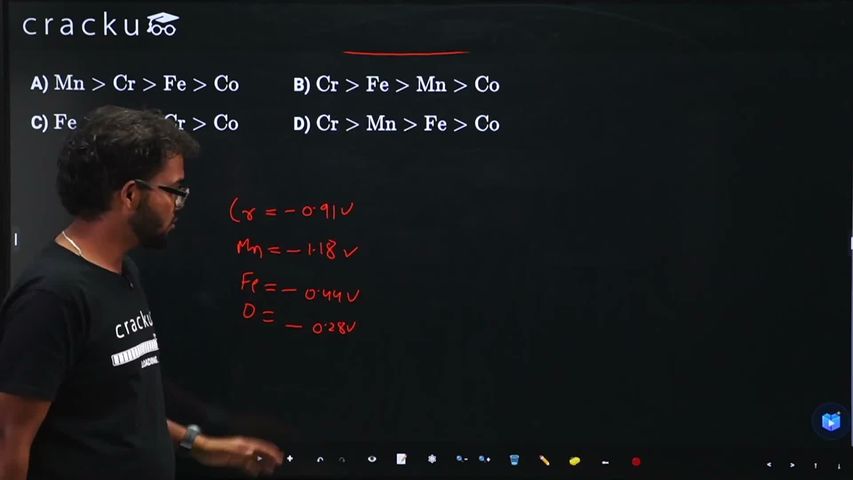 cracku
A) Mn > Cr > Fe > Co
B) Cr > Fe > Mn > Co
C) Fe Cr > Co
D) Cr > Mn > Fe > Co
Cr = - 0.91 V
Mn = - 1.18 V
Fe = - 0.44 V
= - 0.28 V
cracku
LOADING...